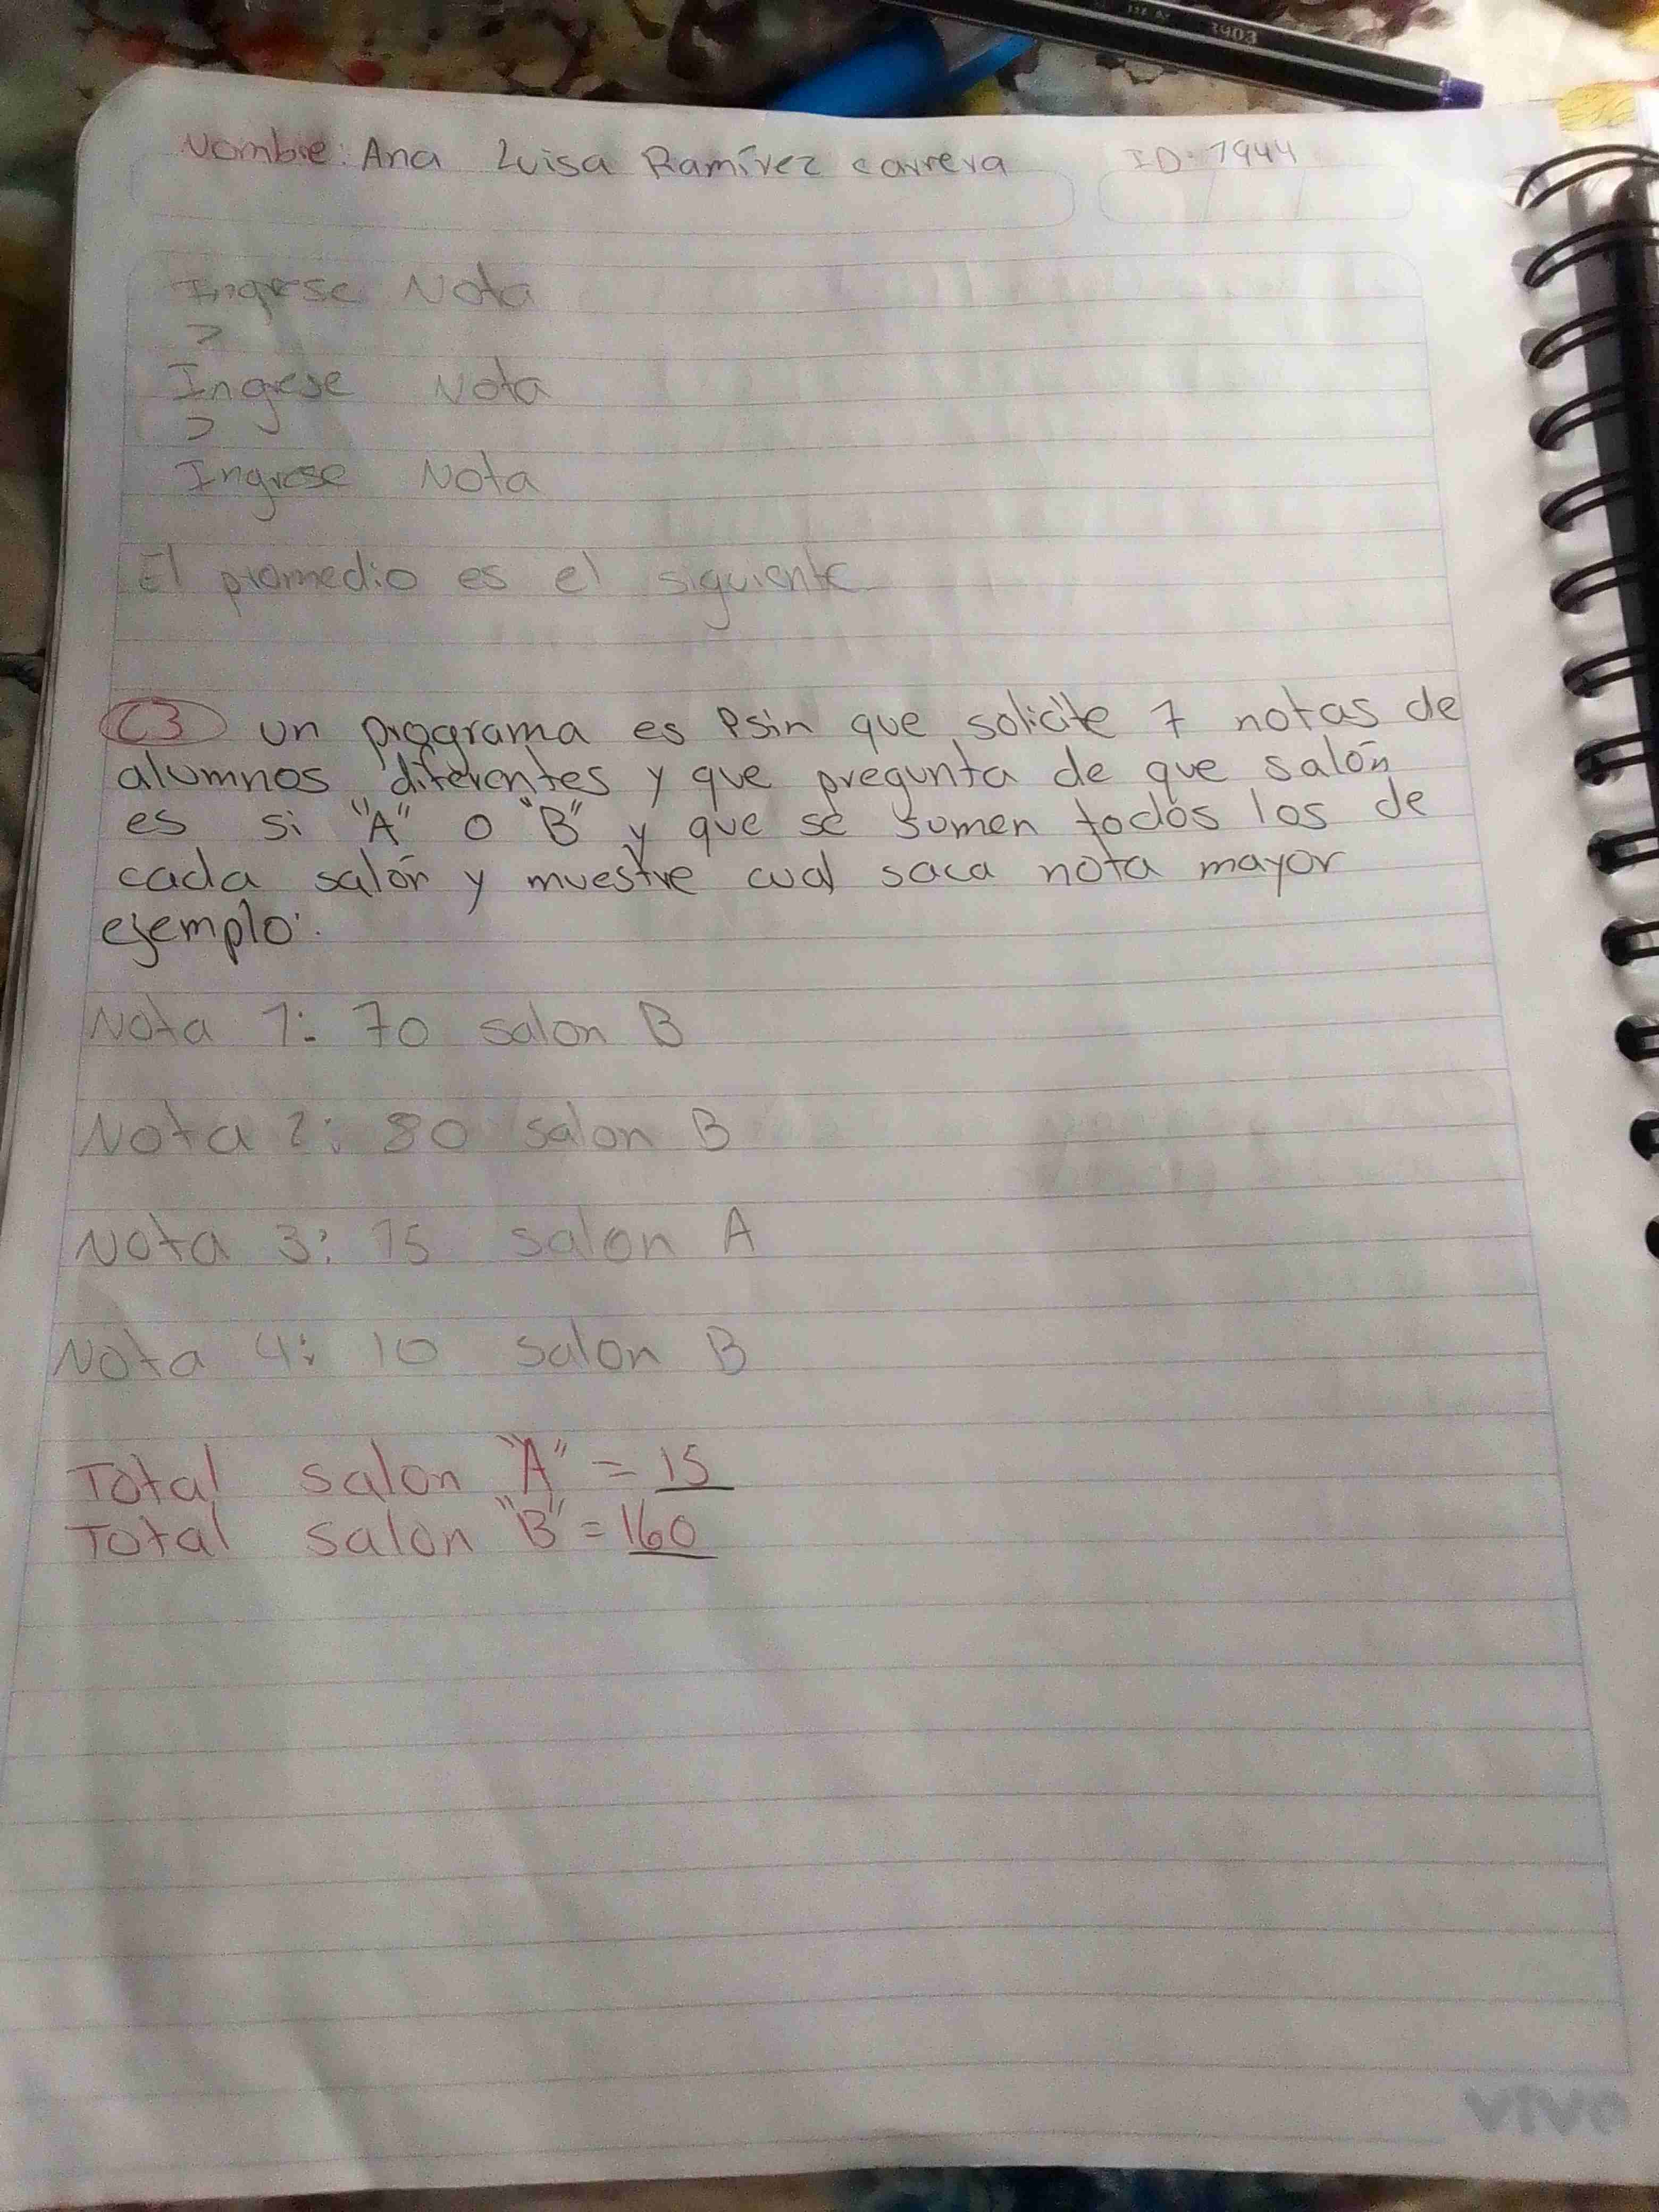 3903
Nombre: Ana Luisa Ramírez carrera ID: 1944
Ingrese Nota
>
Ingrese Nota
>
Ingrese Nota
El promedio es el siguiente
C3 un programa es Psin que solicite 7 notas de
alumnos diferentes y que pregunta de que salón
es si "A" o "B" y que se sumen todos los de
cada salón y muestre cual saca nota mayor
ejemplo:
Nota 1: 70 salon B
Nota 2: 80 salon B
Nota 3: 15 salon A
Nota 4: 10 salon B
Total salon "A" = 15
Total salon "B" = 160
vivo